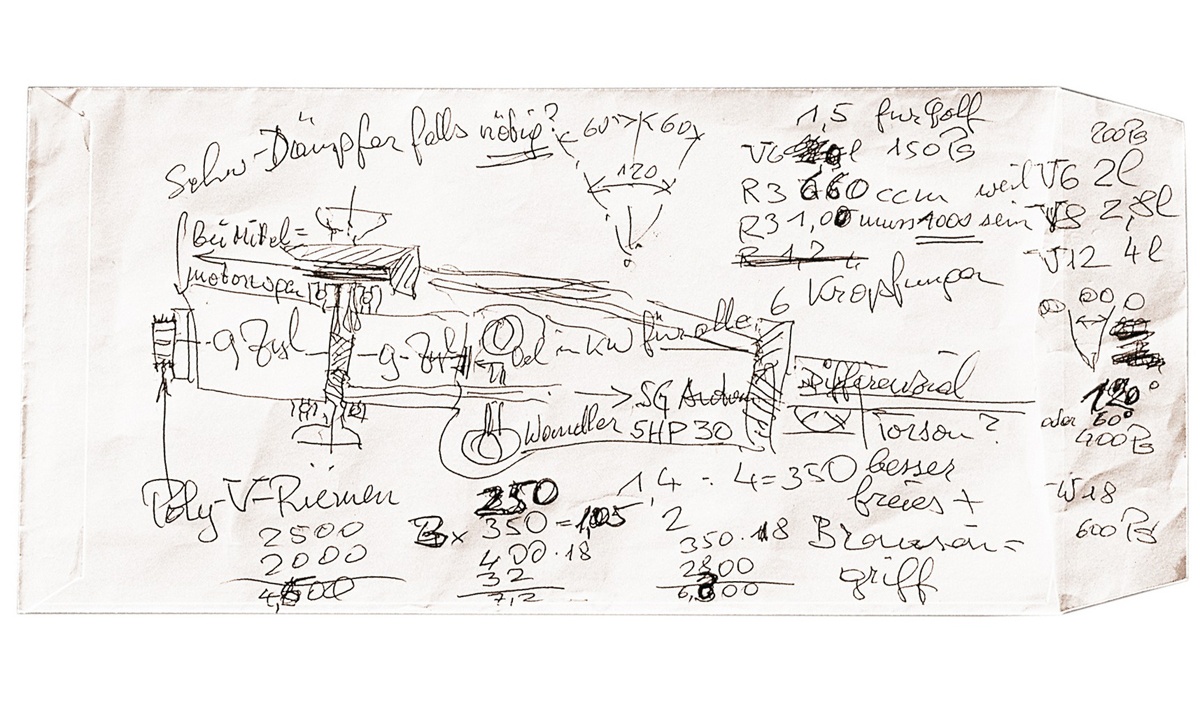 Schw-Dämpfer falls nötig?
60° 60
120
1,5 für Golf
V6 l 150 PS
R3 660 ccm weil V6 2l
R3 1,00 muss 1000 sein V8 2,8l
V12 4l
200 PS
6 Kröpfungen
bei Mittel=
motorwagen
9 Zyl 9-Zyl Oel in KW für alle
5G Autom
Wandler 5HP30
Differenzial
Torson?
120°
oder 60°
400 PS
W18
600 PS
Poly-V-Riemen
2500
2000
4,500
250
350 = 1,05
400 · 18
32
7,2
1,4 : 4 = 350
2
350 · 18
2800
6,300
besser
freies +
griff